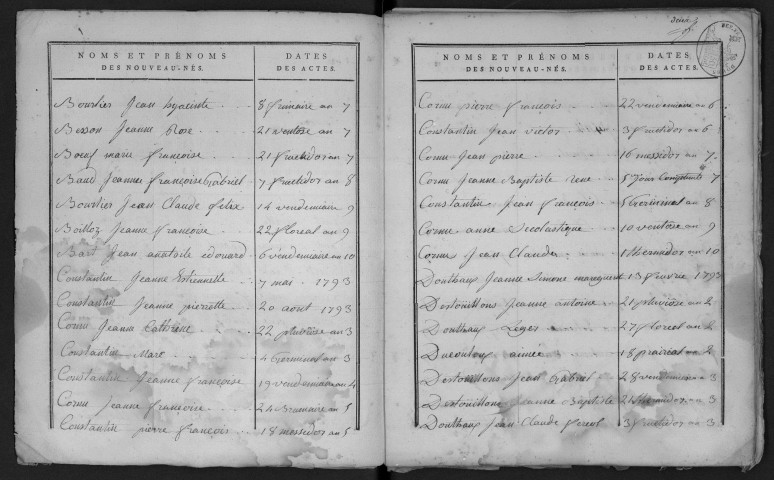 NOMS ET PRÉNOMS DES NOUVEAU-NÉS.
DATES DES ACTES.
Bourlier Jean hyacinte 8 frimaire an 7
Besson Jeanne Rose 21 ventose an 7
Boeuf marie françoise 21 fructidor an 7
Baud Jeanne françoise Gabriel 7 fructidor an 8
Bourlier Jean Claude felix 14 vendemiaire 9
Boilloz Jeanne françoise 22 floreal an 9
Bart Jean anatoile edouard 6 vendemiaire an 10
Constantin Jeanne Etiennette 7 mai 1793
Constantin Jeanne pierrette 20 aout 1793
Cornu Jeanne Catherine 22 pluviose an 3
Constantin Marc 4 Germinal an 3
Constantin Jeanne françoise 19 vendemiaire an 4
Cornu Jeanne françoise 24 Brumaire an 5
Constantin pierre françois 18 messidor an 5
NOMS ET PRÉNOMS DES NOUVEAU-NÉS.
DATES DES ACTES.
Cornu pierre françois 22 vendemiaire an 6
Constantin Jean victor 3 fructidor an 6
Cornu Jean pierre 16 messidor an 7
Cornu Jeanne Baptiste rene 5 Jour Complmts 7
Constantin Jean françois 5 Germinal an 8
Cornu anne Scolastique 10 ventose an 9
Cornu Jean Claude 1 thermidor an 10
Douthaux Jeanne Simone 13 fevrie 1793
Destouillons Jeanne antoine 21 pluviose an 2
Douthaux Leger 27 floreal an 2
aimée 18 prairial an 2
Destouillons Jean Gabriel 28 vendemiaire an 3
Destouillons Jeanne Baptiste 21 thermidor an 3
Douthaux Jean Claude fereol 3 fructidor an 3